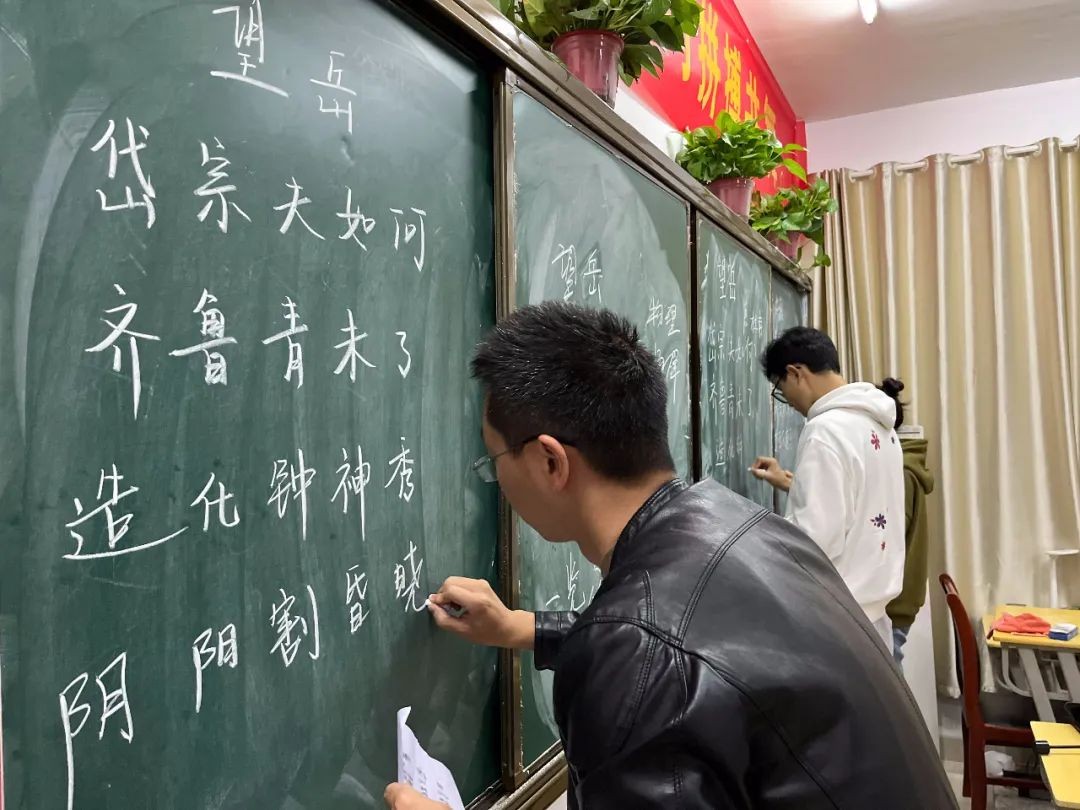 望岳
岱宗夫如何
齐鲁青未了
造化钟神秀
阴阳割昏晓
望岳
一览
望岳
岱宗夫如何
齐鲁青未了
造化钟
拼搏